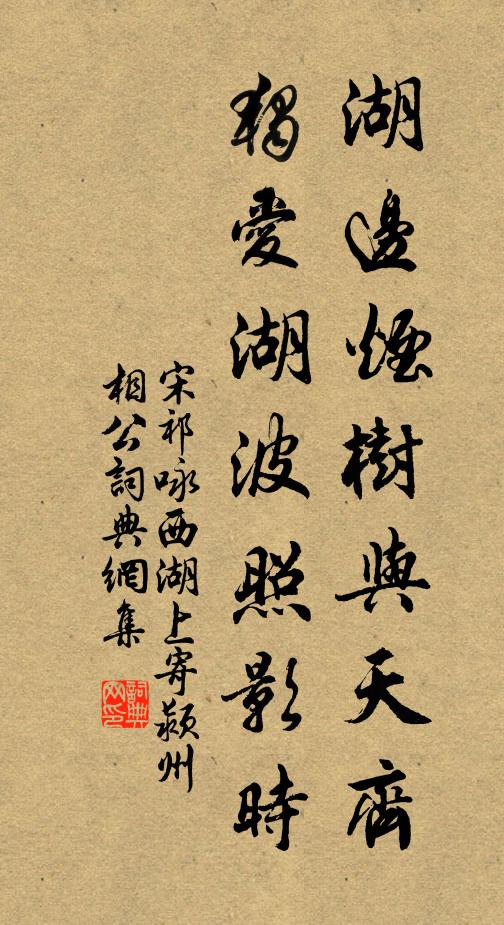 湖邊煙樹與天齊
獨愛湖波照影時
宋祁咏西湖上寄潁州
相公詞典網集
詞典
网印